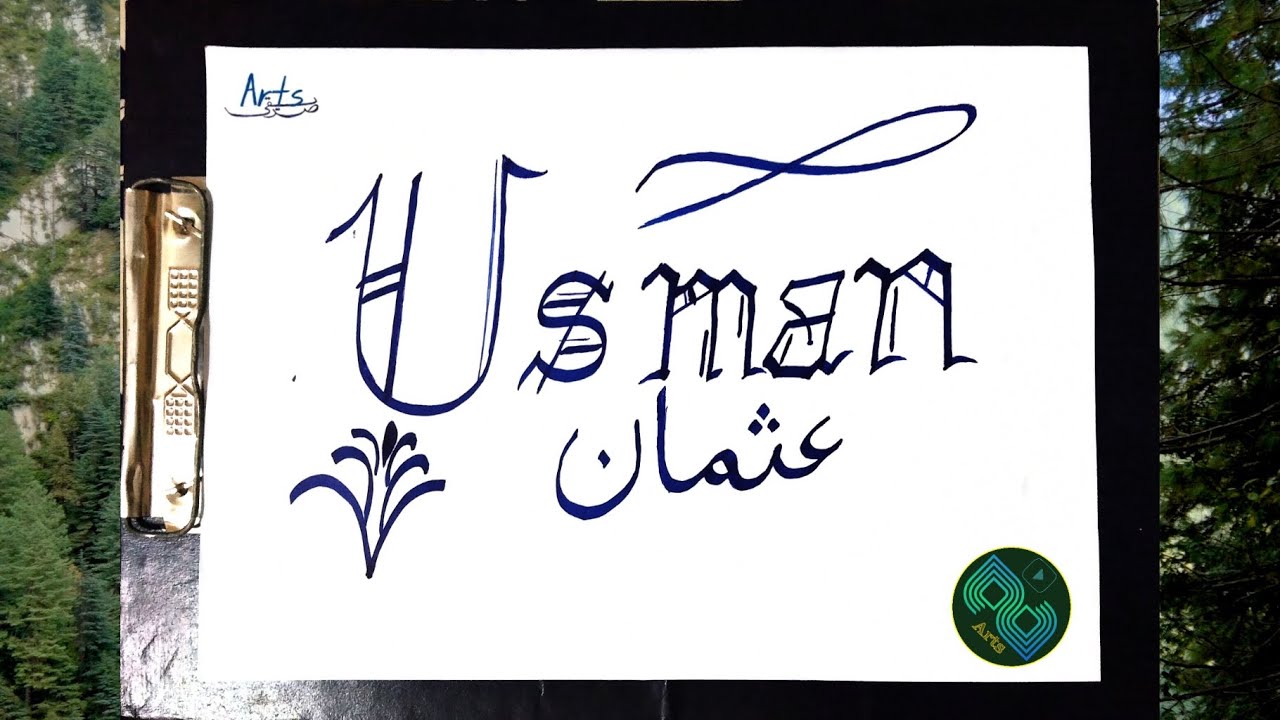 Arts
Usman
عثمان
Arts